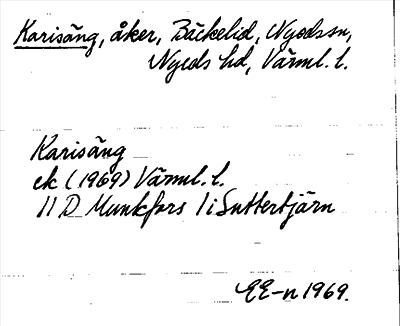 Karisäng, åker, Bäckelid, Nyeds sn,
Nyeds hd, Värml. l.
Karisäng
ek (1969) Värml. l.
11 D Munkfors 1 i Suttertjärn
EE-n 1969.